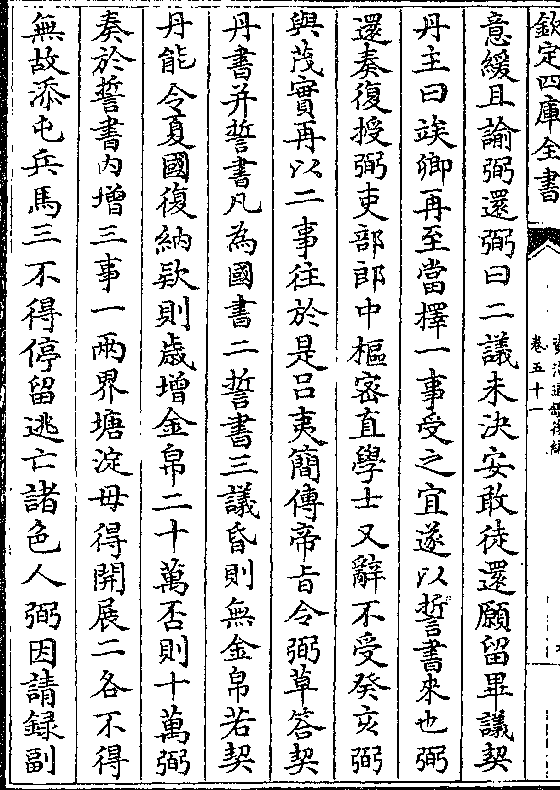 欽定四庫全書
卷五十一
意緩且諭弼還弼曰二議未決安敢徒還願留畢議契
丹主曰竢卿再至當擇一事受之宜遂以誓書來也弼
還奏復授弼吏部郎中樞密直學士又辭不受癸亥弼
與茂實再以二事往於是吕夷簡傳帝旨令弼草答契
丹書并誓書凡為國書二誓書三議昏則無金帛若契
丹能令夏國復納欵則歲增金帛二十萬否則十萬弼
奏於誓書内增三事一兩界塘淀毋得開展二各不得
無故添屯兵馬三不得停留逃亡諸色人弼因請録副